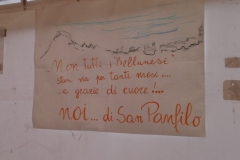 Non tutti i "Bellunesi"
stan via per tanti mesi....
...e grazie di cuore!...
noi... di San Panfilo